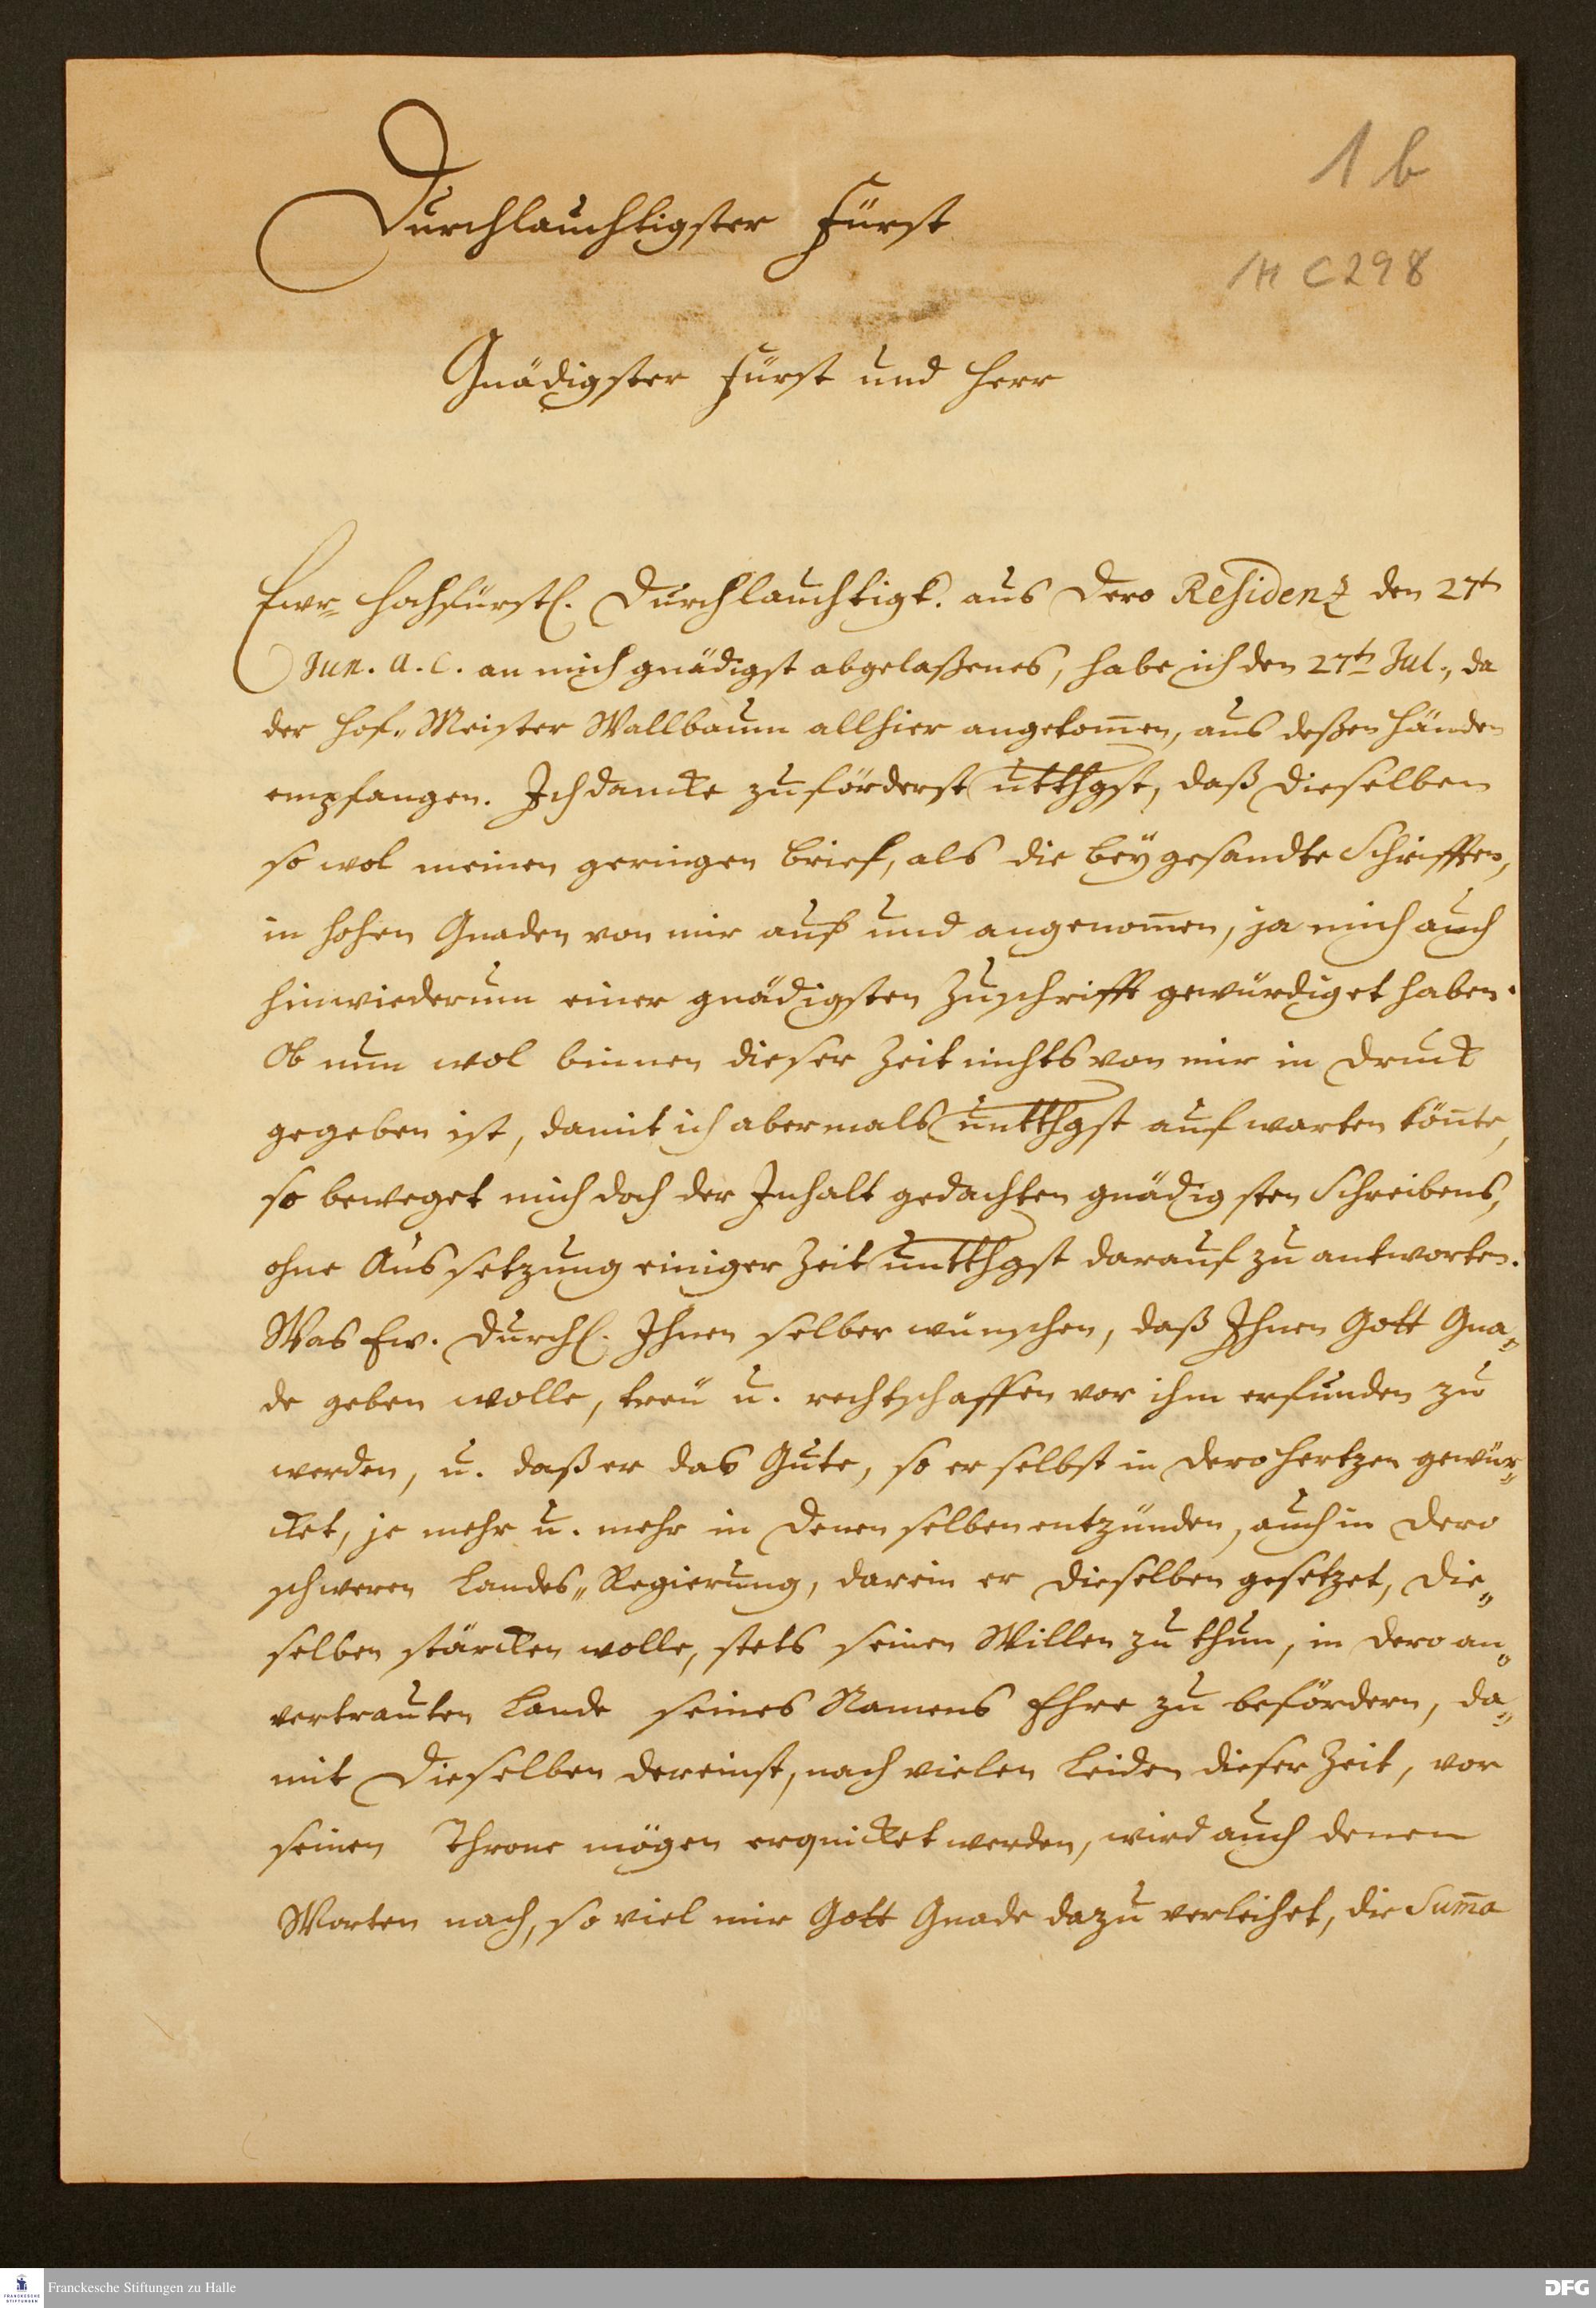 1b
Durchlauchtigster Fürst
1H C298
Gnädigster Fürst und Herr
Ewr. Hochfürstl. Durchlauchtigk. aus Dero Residenz den 27t
Jun. a. c. an mich gnädigst abgelaßenes, habe ich den 27t Jul., da
der Hof-Meister Wallbaum allhier angekom̄en, aus deßen Händen
empfangen. Ich dancke zuförderst utthgst, daß Dieselben
so wol meinen geringen Brief, als die beygesandte Schrifften,
in hohen Gnaden von mir auf und angenom̄en, ja mich auch
hinwiederum einer gnädigsten Zuschrifft gewürdiget haben.
Ob nun wol binnen dieser Zeit nichts von mir in Druck
gegeben ist, damit ich abermals untthgst aufwarten kön̄te,
so beweget mich doch der Inhalt gedachten gnädigsten Schreibens,
ohne Aussetzung einiger Zeit untthgst darauf zu antworten.
Was Ew. Durchl. Ihnen selber wünschen, daß Ihnen Gott Gna-
de geben wolle, treü u. rechtschaffen vor ihm erfunden zu
werden, u. daß er das Gute, so er selbst in Dero Hertzen gewür-
cket, je mehr u. mehr in Denenselben entzünden, auch in Dero
schweren Landes-Regierung, darein er Dieselben gesetzet, Die-
selben stärcken wolle, stets seinen Willen zu thun, in Dero an-
vertrauten Lande seines Namens Ehre zu befördern, da-
mit Dieselben dereinst, nach vielen Leiden dieser Zeit, vor
seinen Throne mögen erquicket werden, wird auch denen
Worten nach, so viel mir Gott Gnade dazu verleihet, die Sum̄a
FRANCKESCHE
STIFTUNGEN
Franckesche Stiftungen zu Halle
DFG